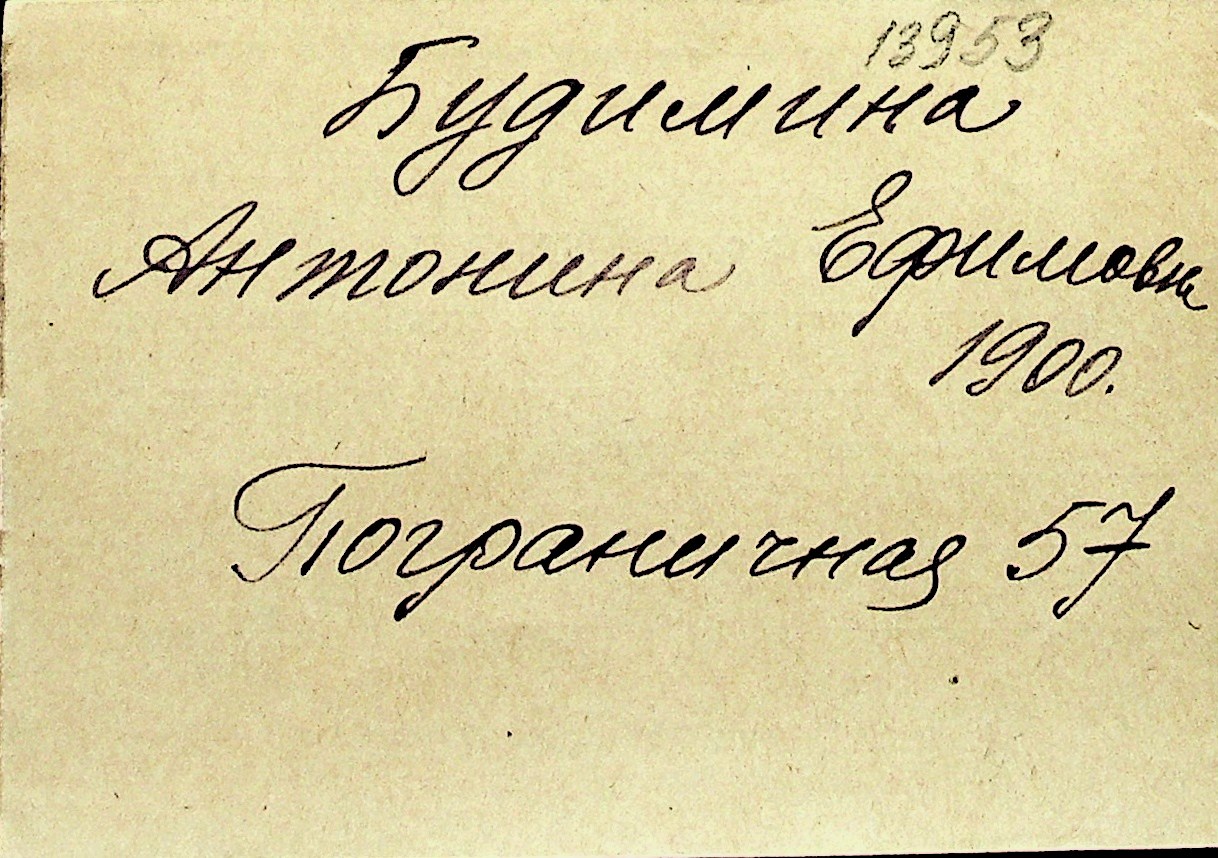 13953
Будимина
Антонина Ефимовна
1900.
Пограничная 57